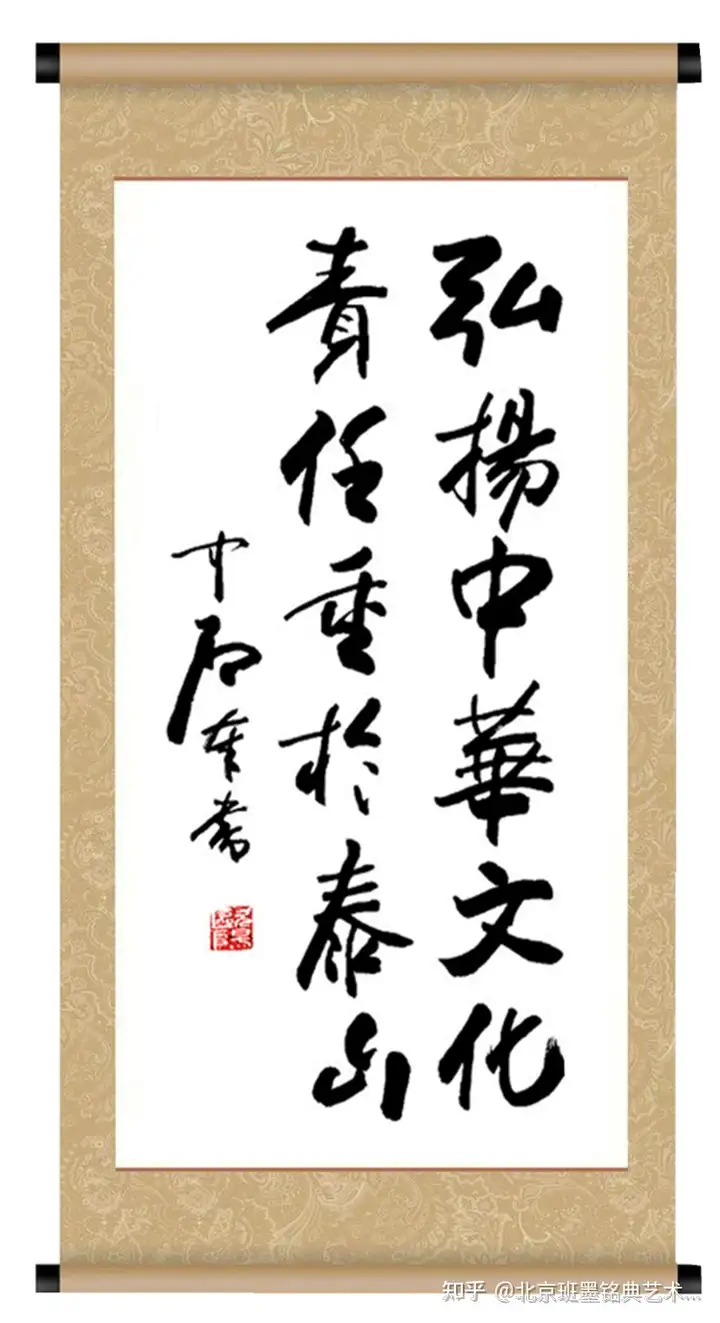 弘揚中華文化
責任重於泰山
知乎 @北京班墨铭典艺术...